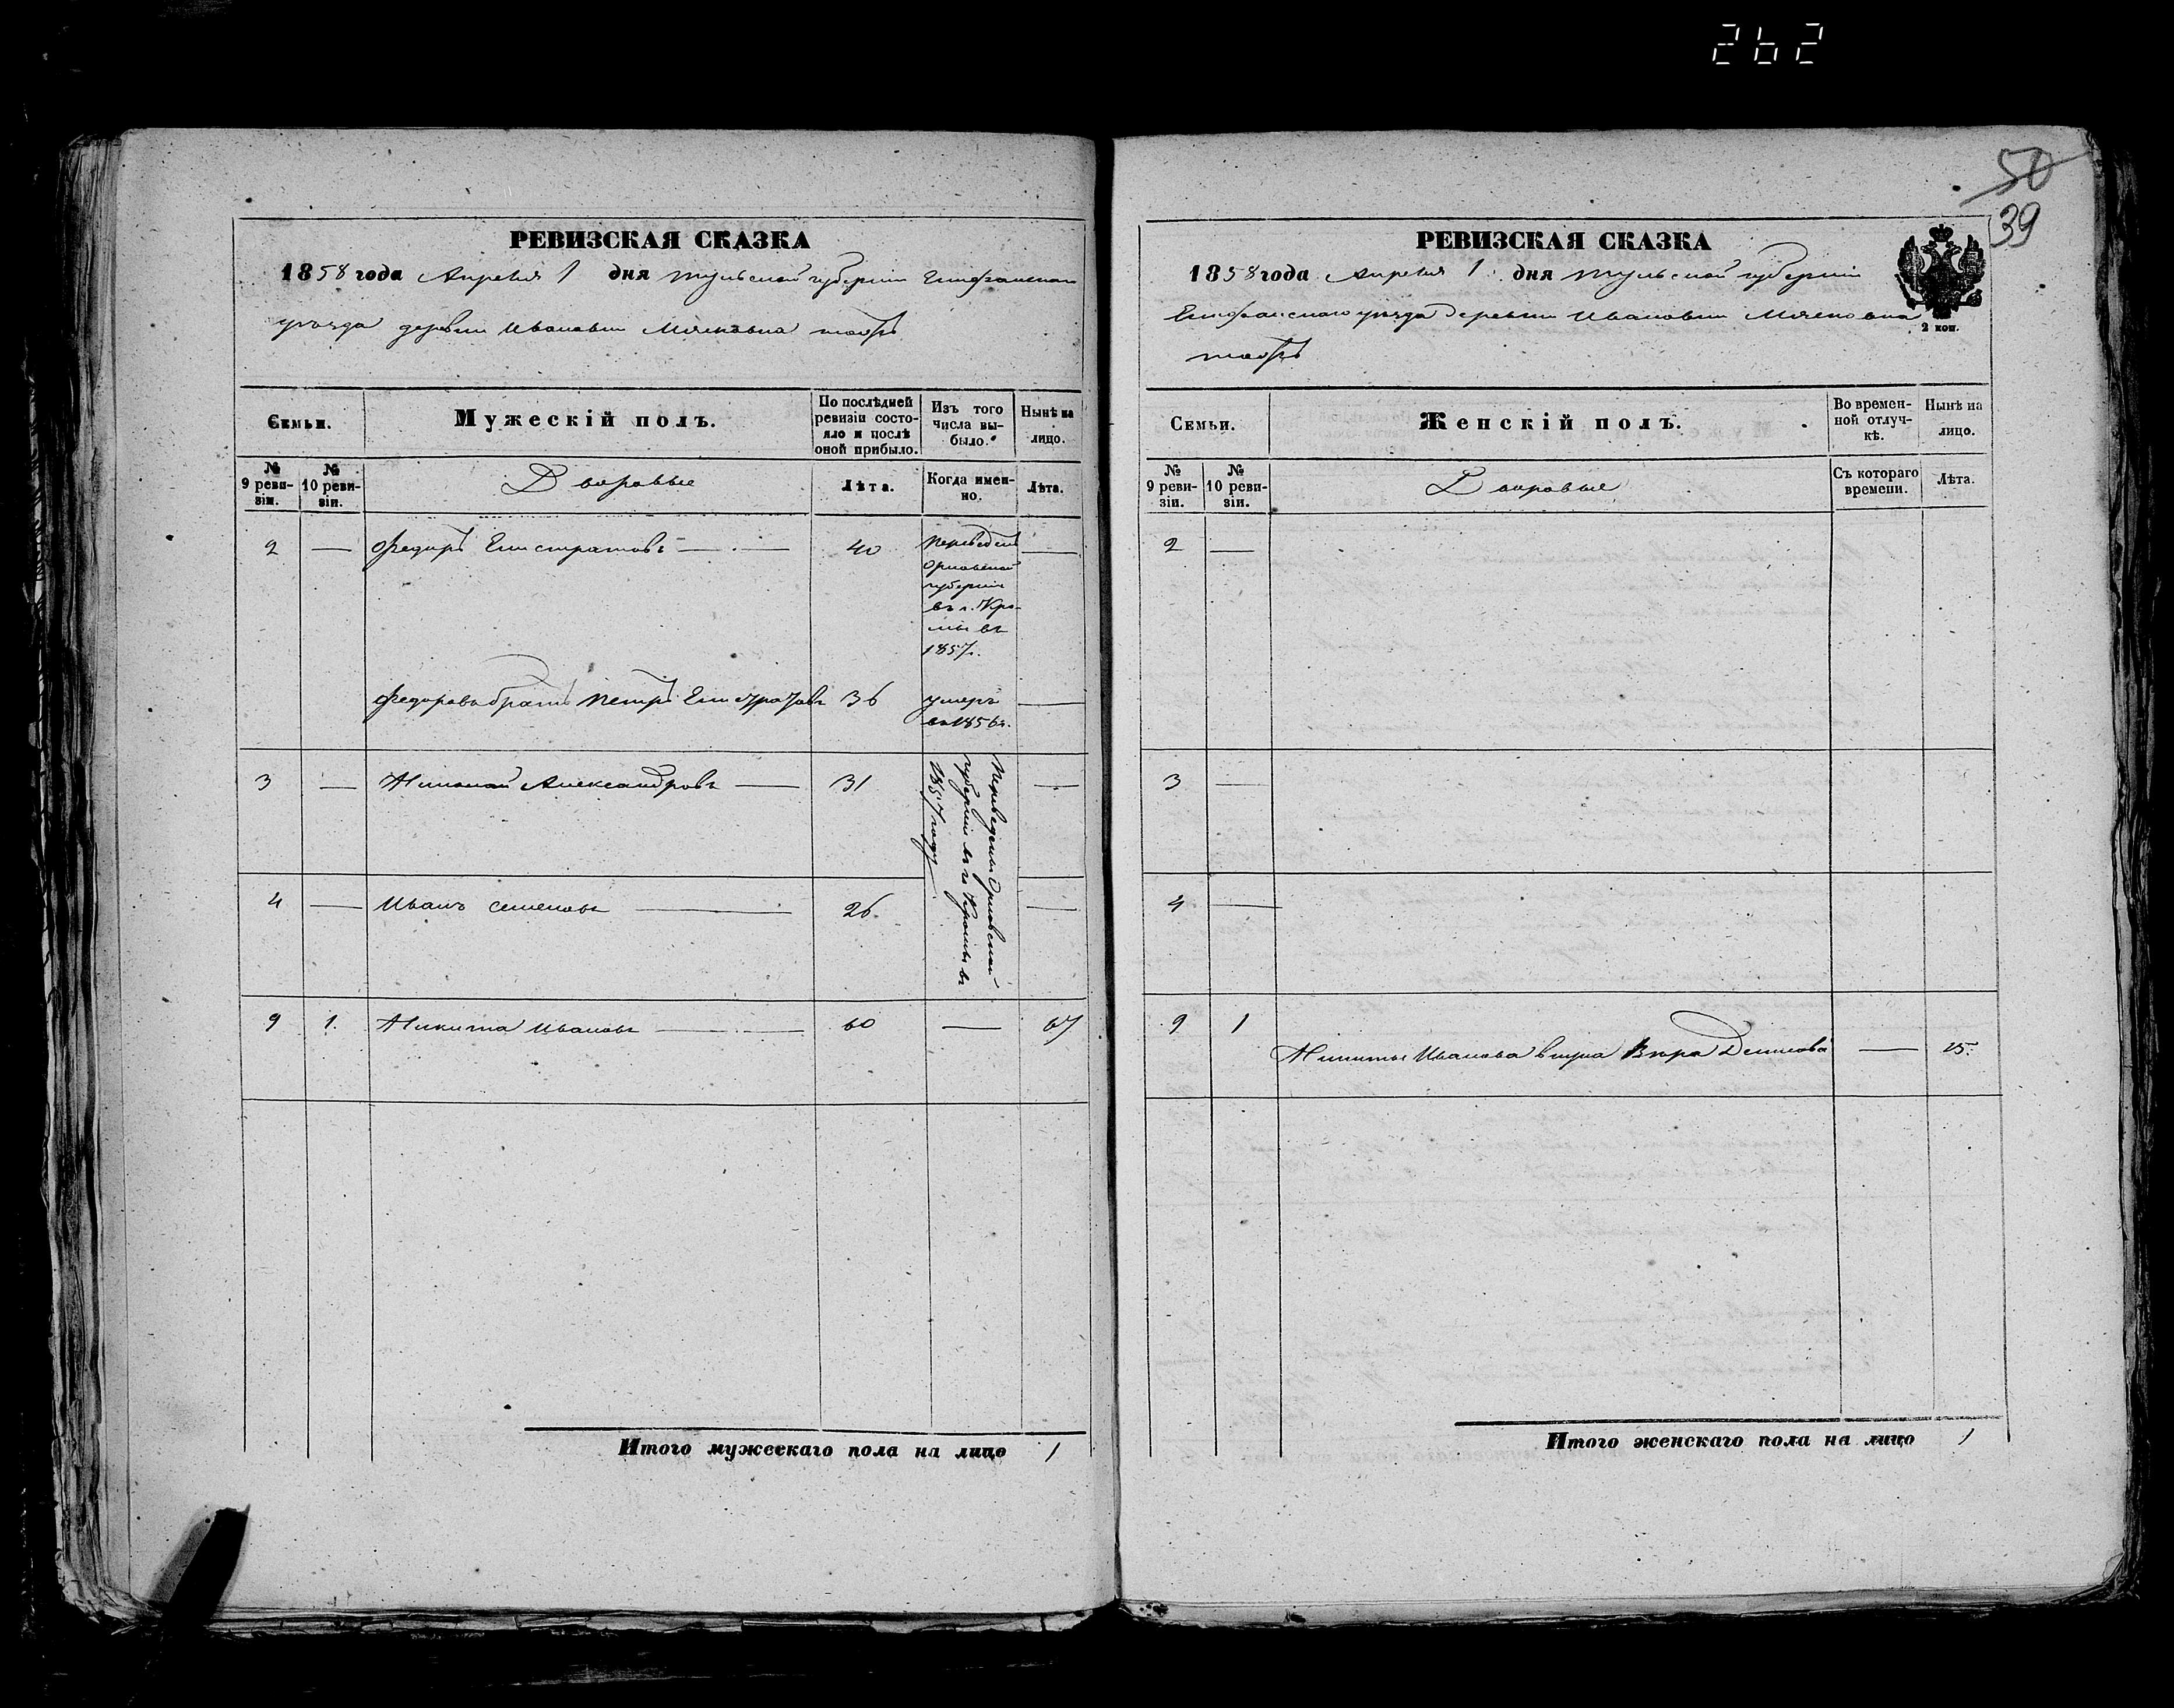 262
РЕВИЗСКАЯ СКАЗКА
1858 года Апреля 1 дня Тульской губернии Епифанскаго
уезда деревни Ивановки
Семьи.
Мужескій полъ.
По послѣдней ревизіи состояло и послѣ оной прибыло.
Изъ того числа выбыло.
Нынѣ на лицо.
№ 9 ревизіи.
№ 10 ревизіи.
Дворовые
Лѣта.
Когда именно.
Лѣта.
2 — Федоръ Елистратовъ — 40 Переведенъ —
Орловской
губерніи
въ г. Кро-
мы въ
1857г.
Федоровъ братъ Петръ Елистратовъ 36 умеръ —
въ 1856г.
3 — Александровъ — 31 —
4 — Иванъ Семеновъ — 26 —
Переведены Орловской
губерніи въ г. Кромы въ
1857 году
9 1. Никита Ивановъ — 60 — 67
Итого мужескаго пола на лицо 1
50
39
РЕВИЗСКАЯ СКАЗКА
1858 года Апреля 1 дня Тульской губерніи
Епифанскаго уезда деревни Ивановки
2 коп.
Семьи.
Женскій полъ.
Во временной отлучкѣ.
Нынѣ на лицо.
№ 9 ревизіи.
№ 10 ревизіи.
Дворовые
Съ котораго времени.
Лѣта.
2 —
3 —
4 —
9 1
Никиты Иванова Вѣра — 25.
Итого женскаго пола на лицо 1